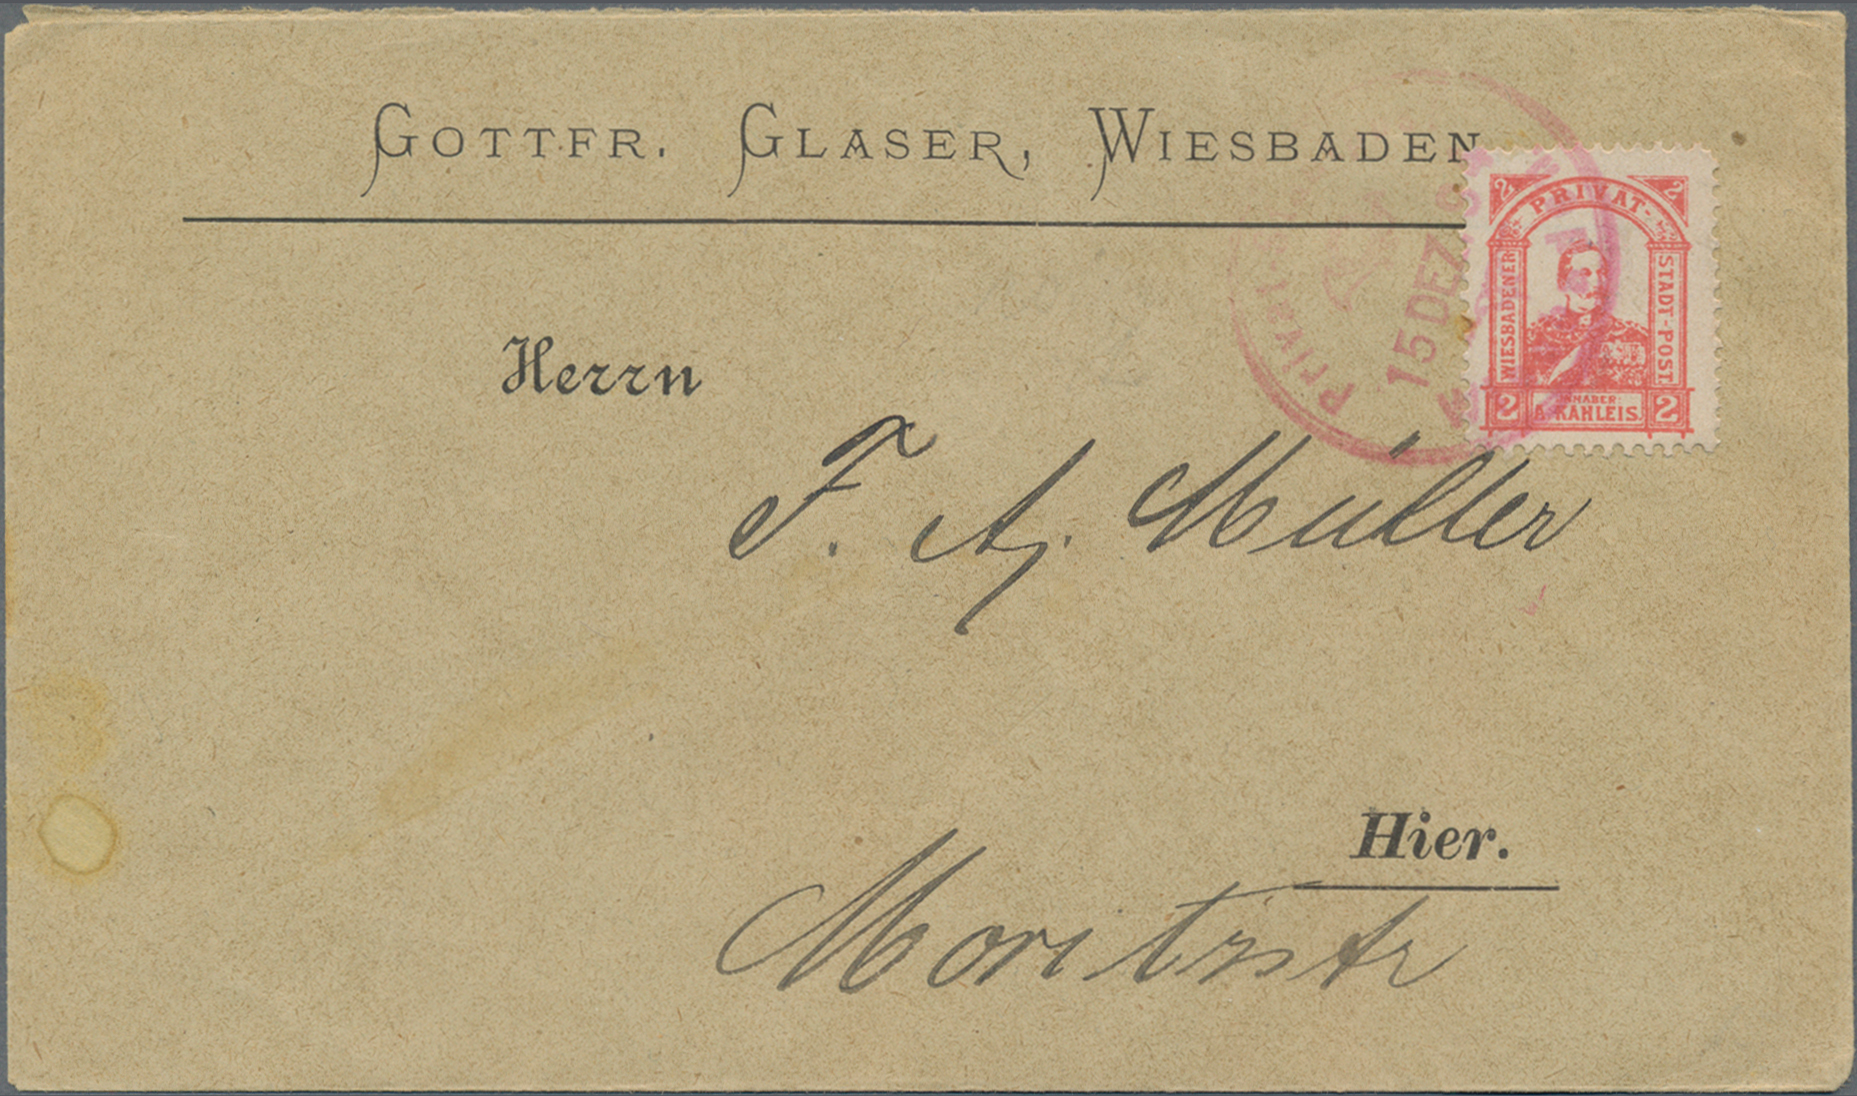 GOTTFR. GLASER, WIESBADEN
2 PRIVAT- 2
WIESBADENER
STADT-POST
INHABER:
2 A. KAHLEIS. 2
Privat-
15 DEZ
Herrn
F. A. Müller
Hier.
Moritzstr